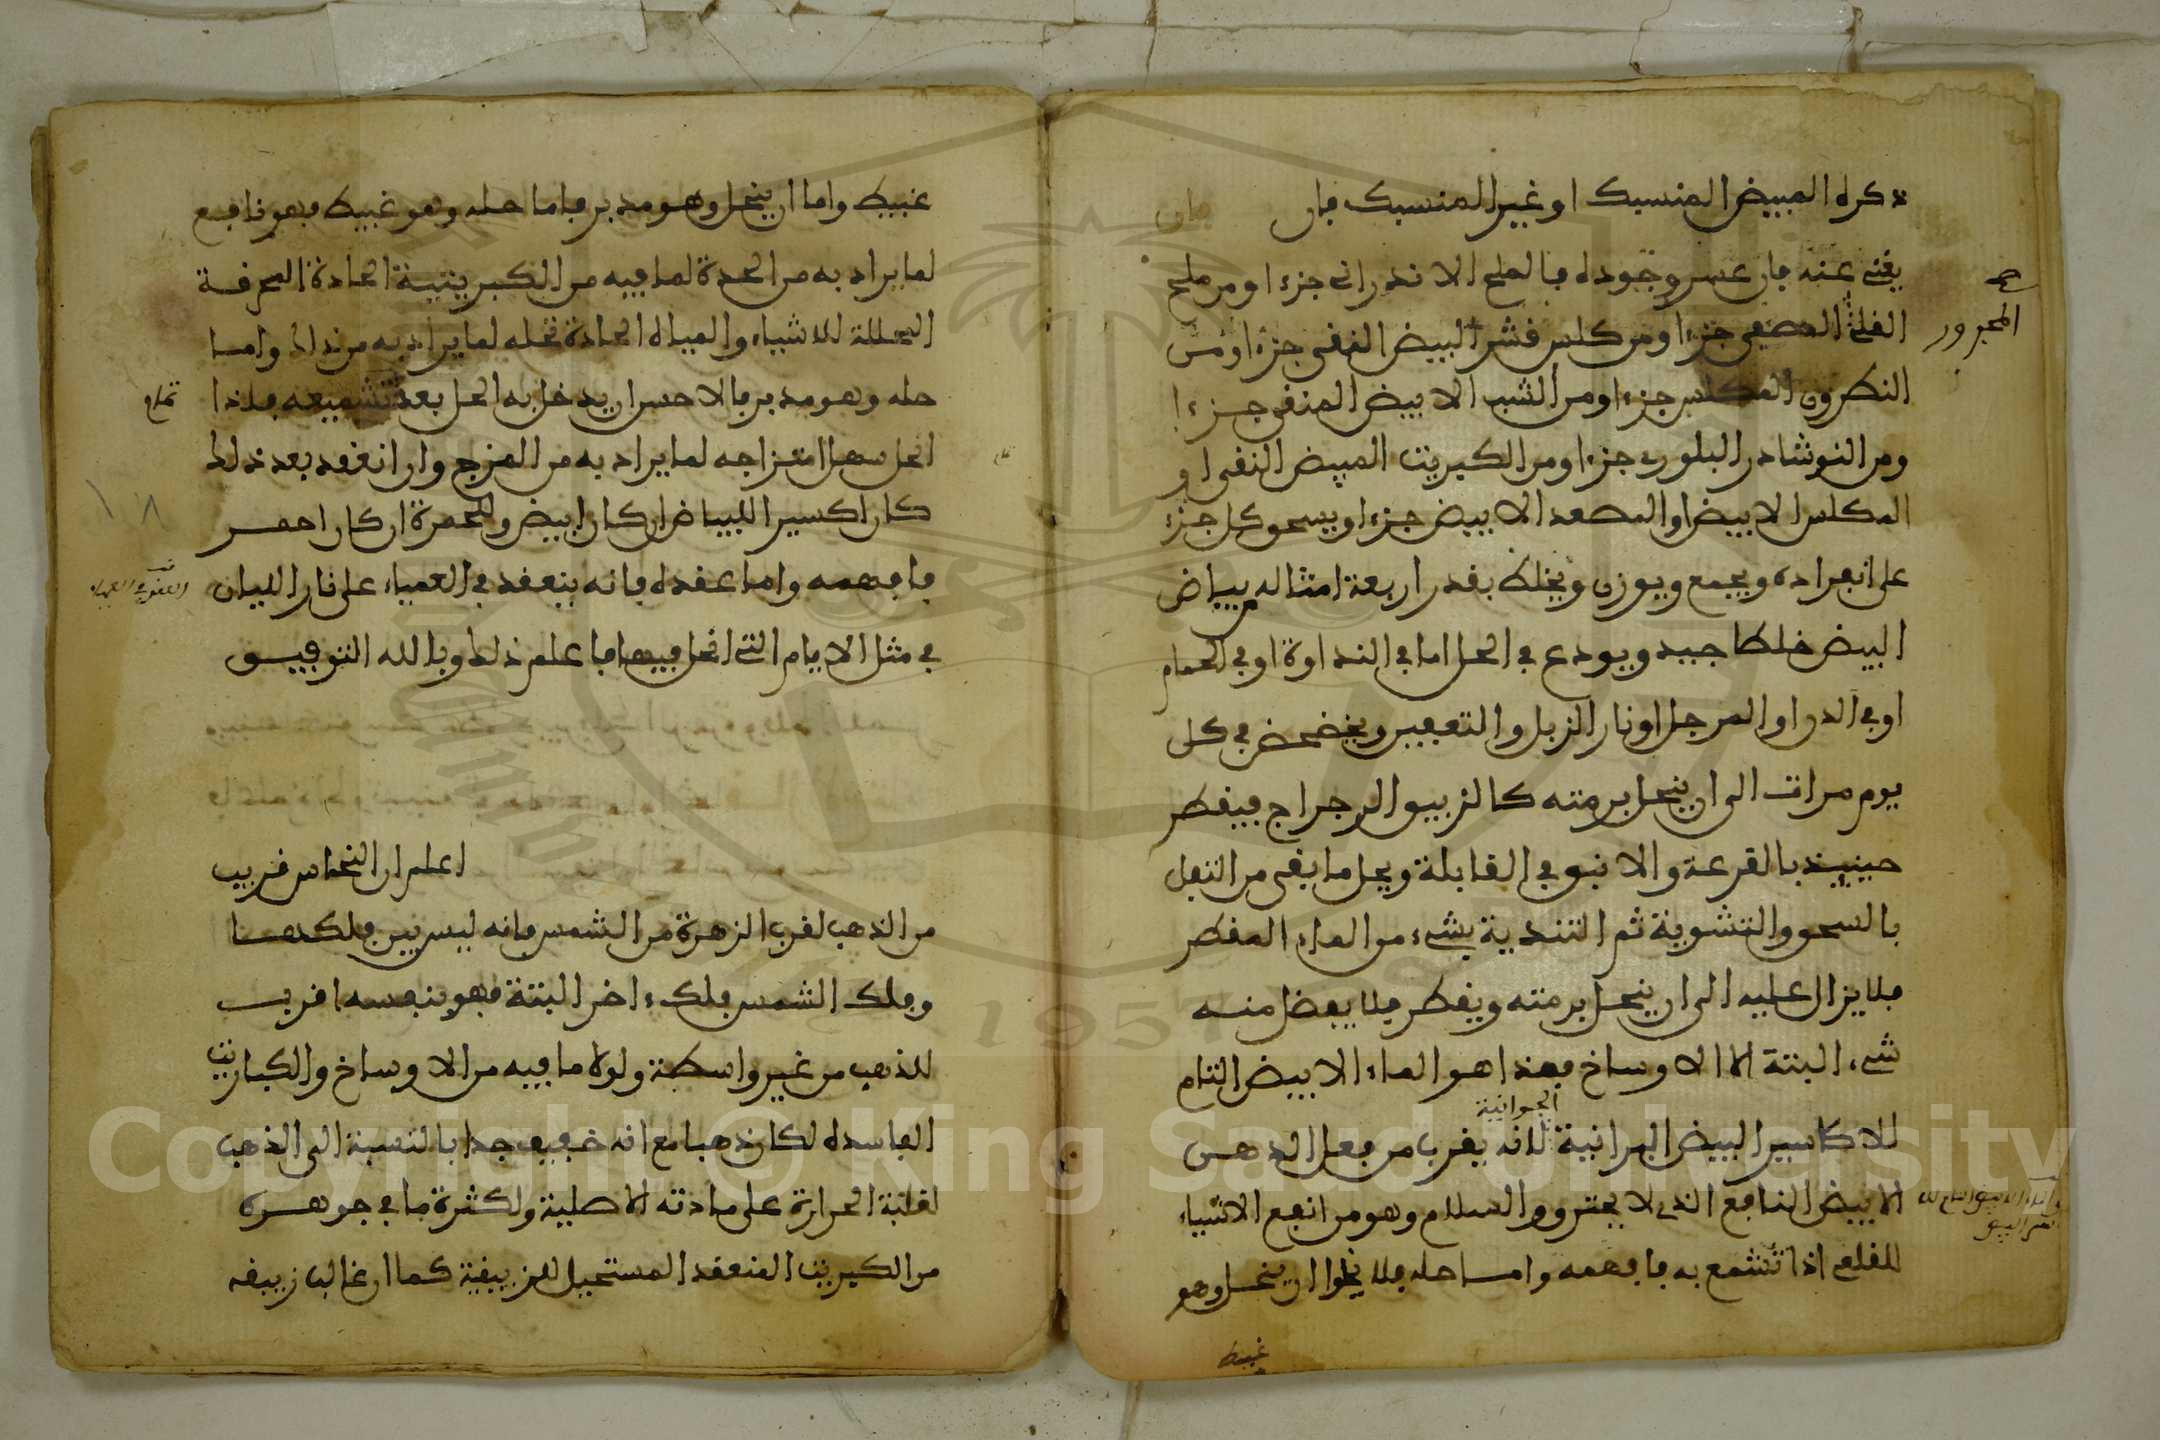 ذكره المبيض المنسبك او غير المنسبك فان
يغني عنه فان عسر وجوده فالملح الاندراني جزء او من ملح
القلي المصفى جزء او من كلس قشر البيض النقي جزء او من
النطرون المكلس جزء او من الشب الابيض المنقى جزء
ومن النوشادر البلوري جزء او من الكبريت المبيض النقي او
المكلس الابيض او المصعد الابيض جزء او يسحق كل جزء
على انفراده ويجمع ويوزن ويخلط بقدر اربعة امثاله بياض
البيض خلطا جيد ويودع في الحل اما في النداوة او في الحمام
او في الدن او المرجل او نار الزبل والتعفين ويخضخض في كل
يوم مرات الى ان ينحل برمته كالزيبق الرجراج فيقطر
حينيذ بالقرعة والانبيق في القابلة ويحل ما بقي من التفل
بالسحق والتشوية ثم التندية بشيء من الماء المقطر
فلا يزال عليه الى ان ينحل برمته ويقطر فلا يفضل منه
شيء البتة الا الاوساخ فهذا هو الماء الابيض التام
الجوانية
للاكاسير البيض البرانية لانه يقرب من فعل الدهن
الابيض النافع الذي لا يحترق والسلام وهو من انفع الاشياء
للقلعي اذا تشمع به فافهمه واما حله فلا يخلوا ان ينحل وهو
غبيط
المجرور
غبيط واما ان ينحل وهو مدبر فاما حله وهو غبيط فهو نافع
لما يراد به من الحدة لما فيه من الكبريتية الحادة المحرقة
المحللة للاشياء والمياه الحادة تحله لما يراد به من ذلك واما
حله وهو مدبر فالاحسن ان يدخل به الحل بعد تشميعه فاذا
انحل سهل امتزاجه لما يراد به من المزج وان انعقد بعد ذلك
كان اكسيرا للبياض ان كان ابيض وللحمرة ان كان احمر
فافهمه واما عقده فانه ينعقد في العمياء على نار الليان
في مثل الايام التي انحل فيها فاعلم ذلك وبالله التوفيق
اعلم ان النحاس قريب
من الذهب لقرب الزهرة من الشمس فانه ليس بين فلكها
وفلك الشمس فلك اخر البتة فهو بنفسه اقرب
للذهب من غير واسطة ولولا ما فيه من الاوساخ والكباريت
الفاسده لكان ذهبا مع انه خفيف جدا بالنسبة الى الذهب
لغلبة الحرارة على مادته الاصلية ولكثرة ما في جوهره
من الكبريت المنعقد المستحيل للزيبقية كما ان غالب زيبقه